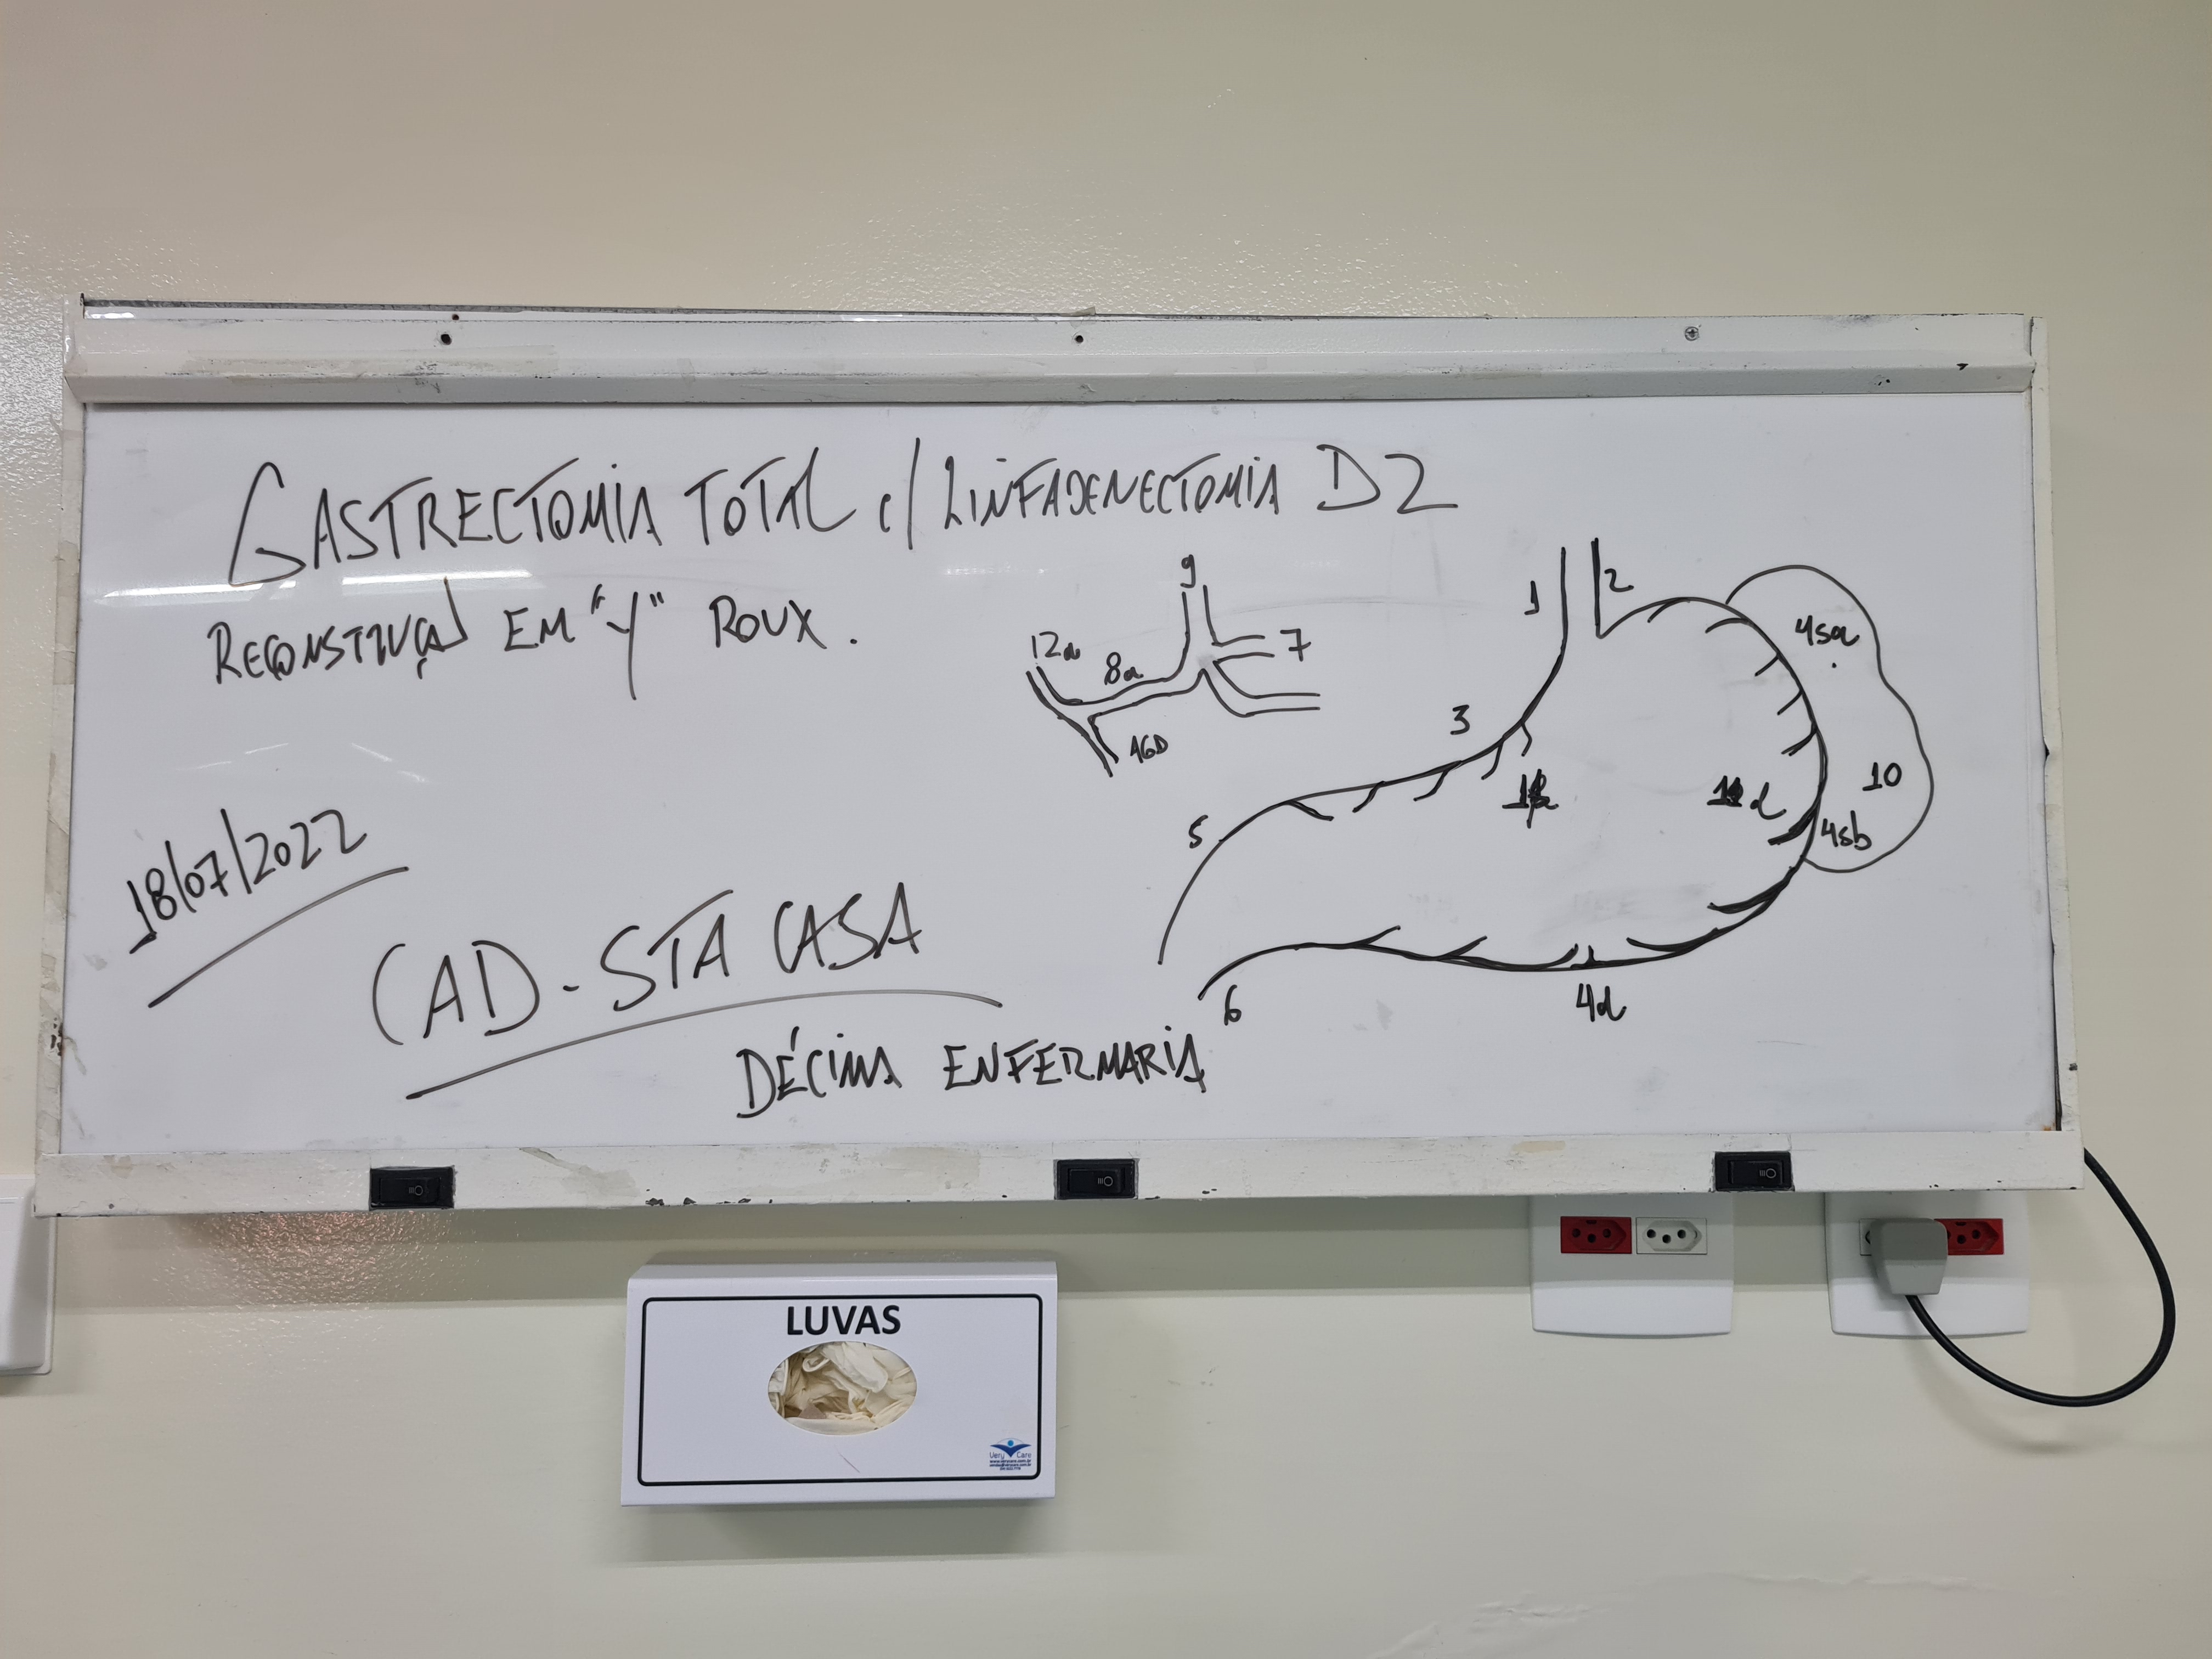 GASTRECTOMIA TOTAL c/ LINFADENECTOMIA D2
RECONSTRUÇÃO EM "Y" ROUX.
9
12a
8a
7
AGD
1
2
3
4sa
10
11d
4sb
5
4d
6
18/07/2022
CAD - STA CASA
DÉCIMA ENFERMARIA
LUVAS
Very Care